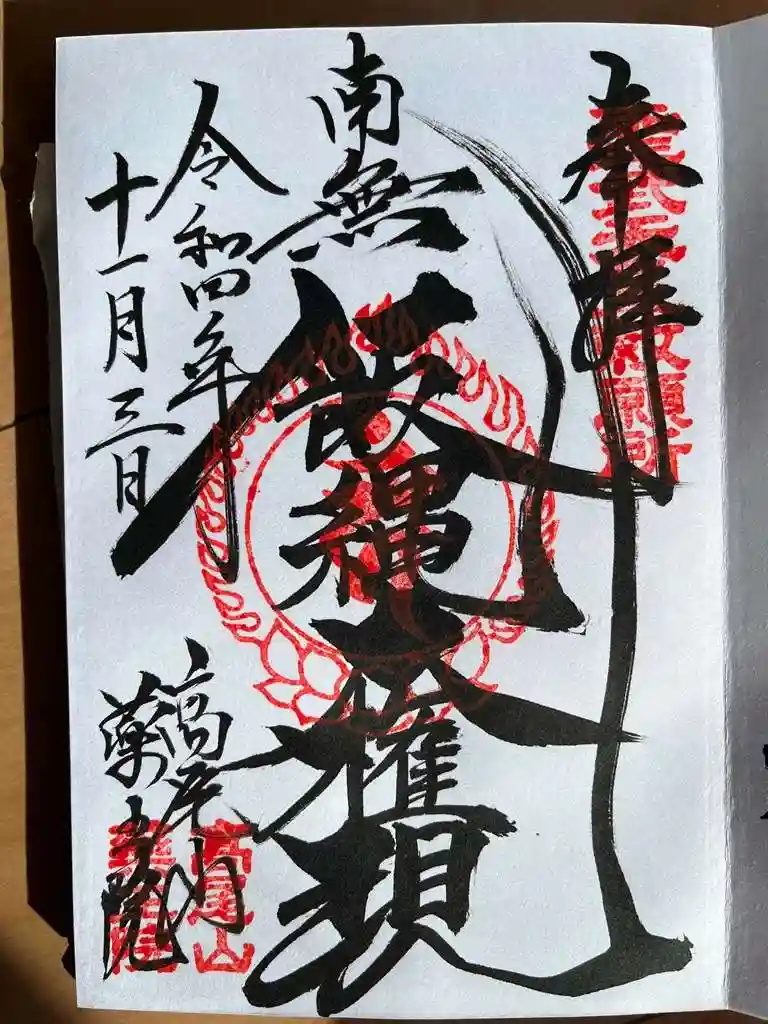 奉拝
南無飯縄大権現
令和四年
十一月三日
高尾山
薬王院
高尾山